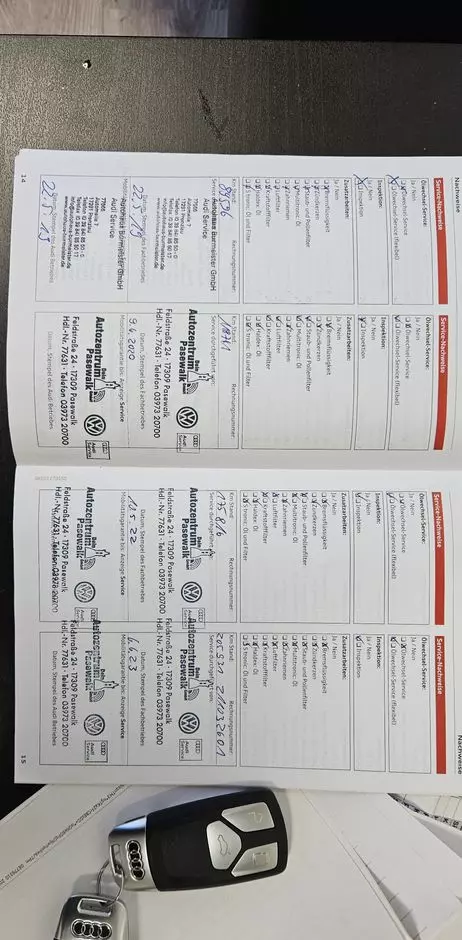 Nachweise
Service-Nachweise
Ölwechsel-Service:
Ja / Nein
Ölwechsel-Service
Ölwechsel-Service (flexibel)
Inspektion:
Ja / Nein
Inspektion
Zusatzarbeiten:
Ja / Nein
Bremsflüssigkeit
Zündkerzen
Staub- und Pollenfilter
Multitronic Öl
Zahnriemen
Luftfilter
Kraftstofffilter
Haldex Öl
S tronic Öl und Filter
Km-Stand:
Rechnungsnummer:
Service durchgeführt am:
Autohaus Burmeister GmbH
Audi Service
17291 Prenzlau
Datum, Stempel des Fachbetriebes
Mobilitätsgarantie bis: Anzeige Service
Autohaus Burmeister GmbH
Audi Service
77666
17291 Prenzlau
Datum, Stempel des Audi Betriebes
14
Service-Nachweise
Ölwechsel-Service:
Ja / Nein
Ölwechsel-Service
Ölwechsel-Service (flexibel)
Inspektion:
Ja / Nein
Inspektion
Zusatzarbeiten:
Ja / Nein
Bremsflüssigkeit
Zündkerzen
Staub- und Pollenfilter
Multitronic Öl
Zahnriemen
Luftfilter
Kraftstofffilter
Haldex Öl
S tronic Öl und Filter
Km-Stand:
Rechnungsnummer:
Service durchgeführt am:
Autozentrum
Pasewalk
Feldstraße 24 · 17309 Pasewalk
Hdl.-Nr. 77631 · Telefon 03973 20700
Datum, Stempel des Fachbetriebes
Mobilitätsgarantie bis: Anzeige Service
9.4.2020
Autozentrum
Pasewalk
Audi
Service
Feldstraße 24 · 17309 Pasewalk
Hdl.-Nr. 77631 · Telefon 03973 20700
Datum, Stempel des Audi Betriebes
Service-Nachweise
Ölwechsel-Service:
Ja / Nein
Ölwechsel-Service
Ölwechsel-Service (flexibel)
Inspektion:
Ja / Nein
Inspektion
Zusatzarbeiten:
Ja / Nein
Bremsflüssigkeit
Zündkerzen
Staub- und Pollenfilter
Multitronic Öl
Zahnriemen
Luftfilter
Kraftstofffilter
Haldex Öl
S tronic Öl und Filter
Km-Stand:
Rechnungsnummer:
175816
Service durchgeführt am:
Autozentrum
Pasewalk
Feldstraße 24 · 17309 Pasewalk
Hdl.-Nr. 77631 · Telefon 03973 20700
Datum, Stempel des Fachbetriebes
Mobilitätsgarantie bis: Anzeige Service
11.5.22
Autozentrum
Pasewalk
Feldstraße 24 · 17309 Pasewalk
Hdl.-Nr. 77631 · Telefon 03973 20700
Nachweise
Service-Nachweise
Ölwechsel-Service:
Ja / Nein
Ölwechsel-Service
Ölwechsel-Service (flexibel)
Inspektion:
Ja / Nein
Inspektion
Zusatzarbeiten:
Ja / Nein
Bremsflüssigkeit
Zündkerzen
Staub- und Pollenfilter
Multitronic Öl
Zahnriemen
Luftfilter
Kraftstofffilter
Haldex Öl
S tronic Öl und Filter
Km-Stand:
Rechnungsnummer:
205331 21032601
Service durchgeführt am:
Autozentrum
Pasewalk
Audi
Service
Feldstraße 24 · 17309 Pasewalk
Hdl.-Nr. 77631 · Telefon 03973 20700
Datum, Stempel des Fachbetriebes
Mobilitätsgarantie bis: Anzeige Service
6.6.23
Autozentrum
Pasewalk
Audi
Service
Feldstraße 24 · 17309 Pasewalk
Hdl.-Nr. 77631 · Telefon 03973 20700
Datum, Stempel des Audi Betriebes
15